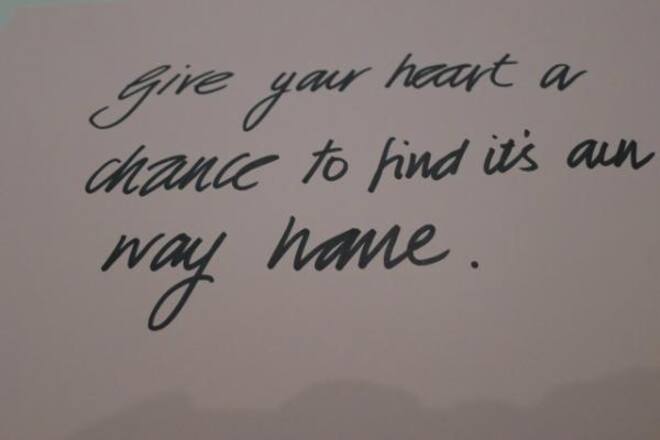 Give your heart a
chance to find it's own
way home.